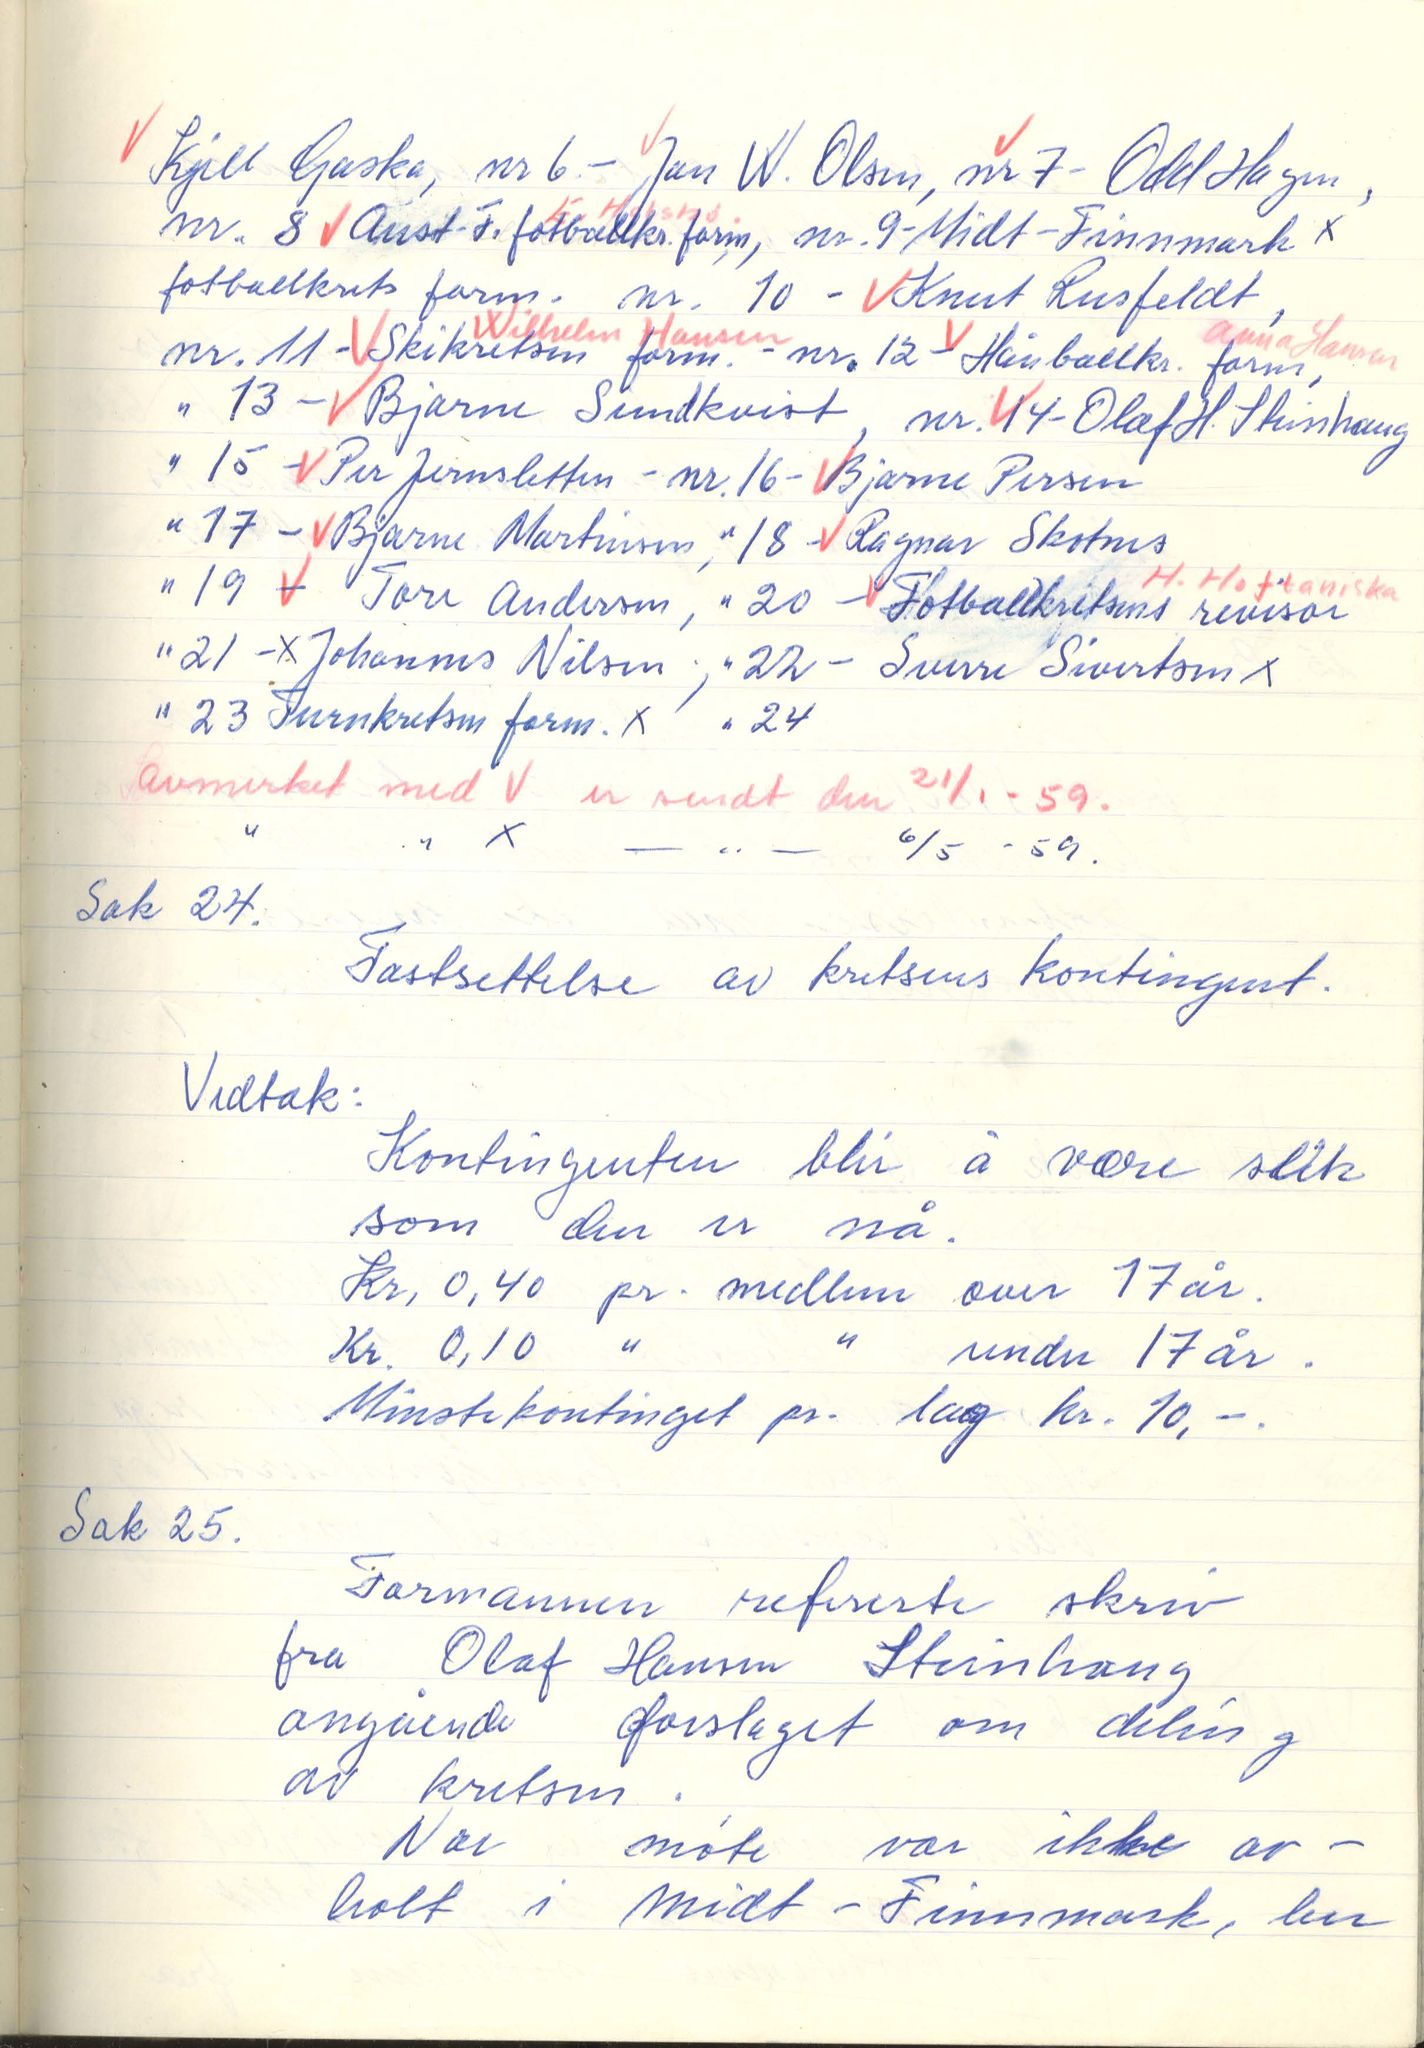 V Kjell Gaska, nr 6 - V Jan W. Olsen, V nr 7 - Odd Hagen,
nr. 8 V Aust-F. fotballkr. form, nr. 9 - Midt-Finnmark X
fotballkrets form. nr. 10 - V Knut Rusfeldt,
X Wilhelm Hansen Anna Hansen
nr. 11 - V Skikretsen form. - nr. 12 - V Håndballkr. form,
" 13 - V Bjarne Sundkvist, nr. V 14 - Olaf H. Steinhaug
" 15 - V Per Jernsletten - nr. 16 - V Bjarne Persen
" 17 - V Bjarne Martinsen, " 18 - V Ragnar Skotnes
" 19 V - Tore Andersen, " 20 - V Fotballkretsens revisor
" 21 - X Johannes Nilsen, " 22 - Sverre Sivertsen X
" 23 Turnkretsen form. X " 24
avmerket med V er sendt den 21/1 - 59.
" " X — " — 6/5 - 59.
Sak 24.
Fastsettelse av kretsens kontingent.
Vedtak:
Kontingenten blir å være slik
som den er nå.
Kr, 0,40 pr. medlem over 17 år.
Kr. 0,10 " " under 17 år.
Minstekontinget pr. lag kr. 10,-.
Sak 25.
Formannen refererte skriv
fra Olaf Hansen Steinhaug
angående forslaget om deling
av kretsen.
Noe møte var ikke av-
holt i Midt-Finnmark, her